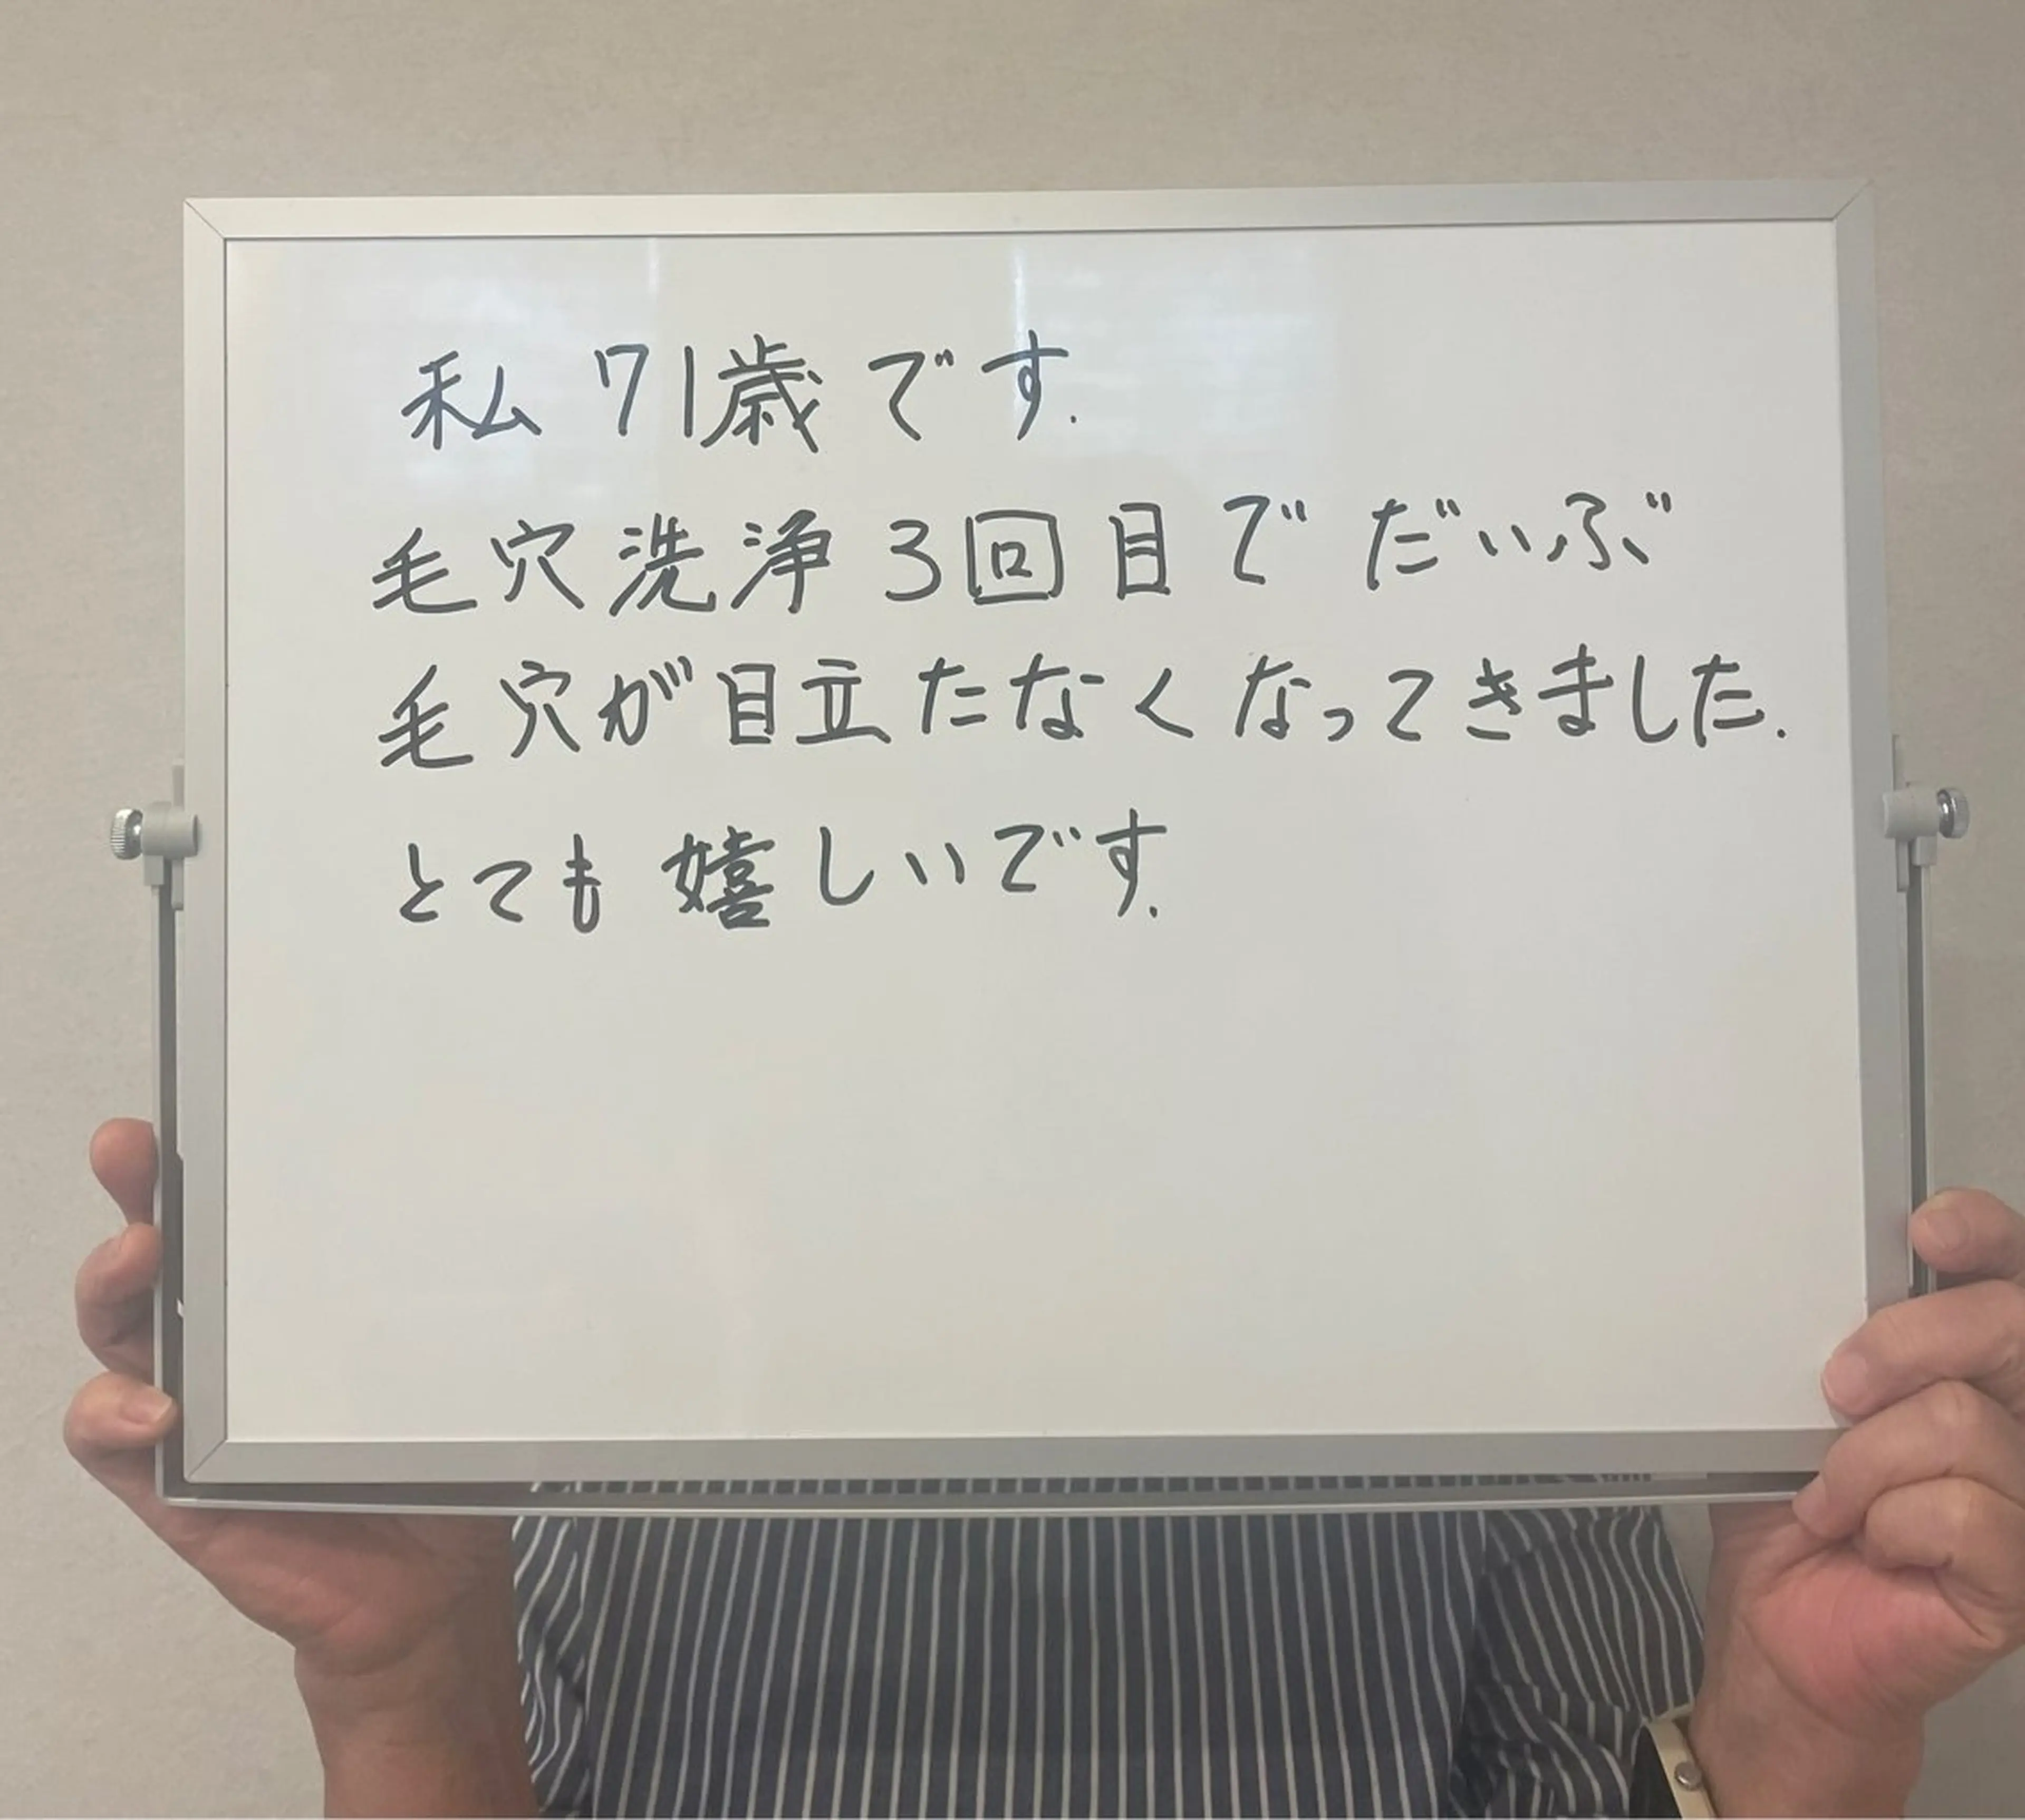 私71歳です.
毛穴洗浄3回目でだいぶ
毛穴が目立たなくなってきました.
とても嬉しいです.